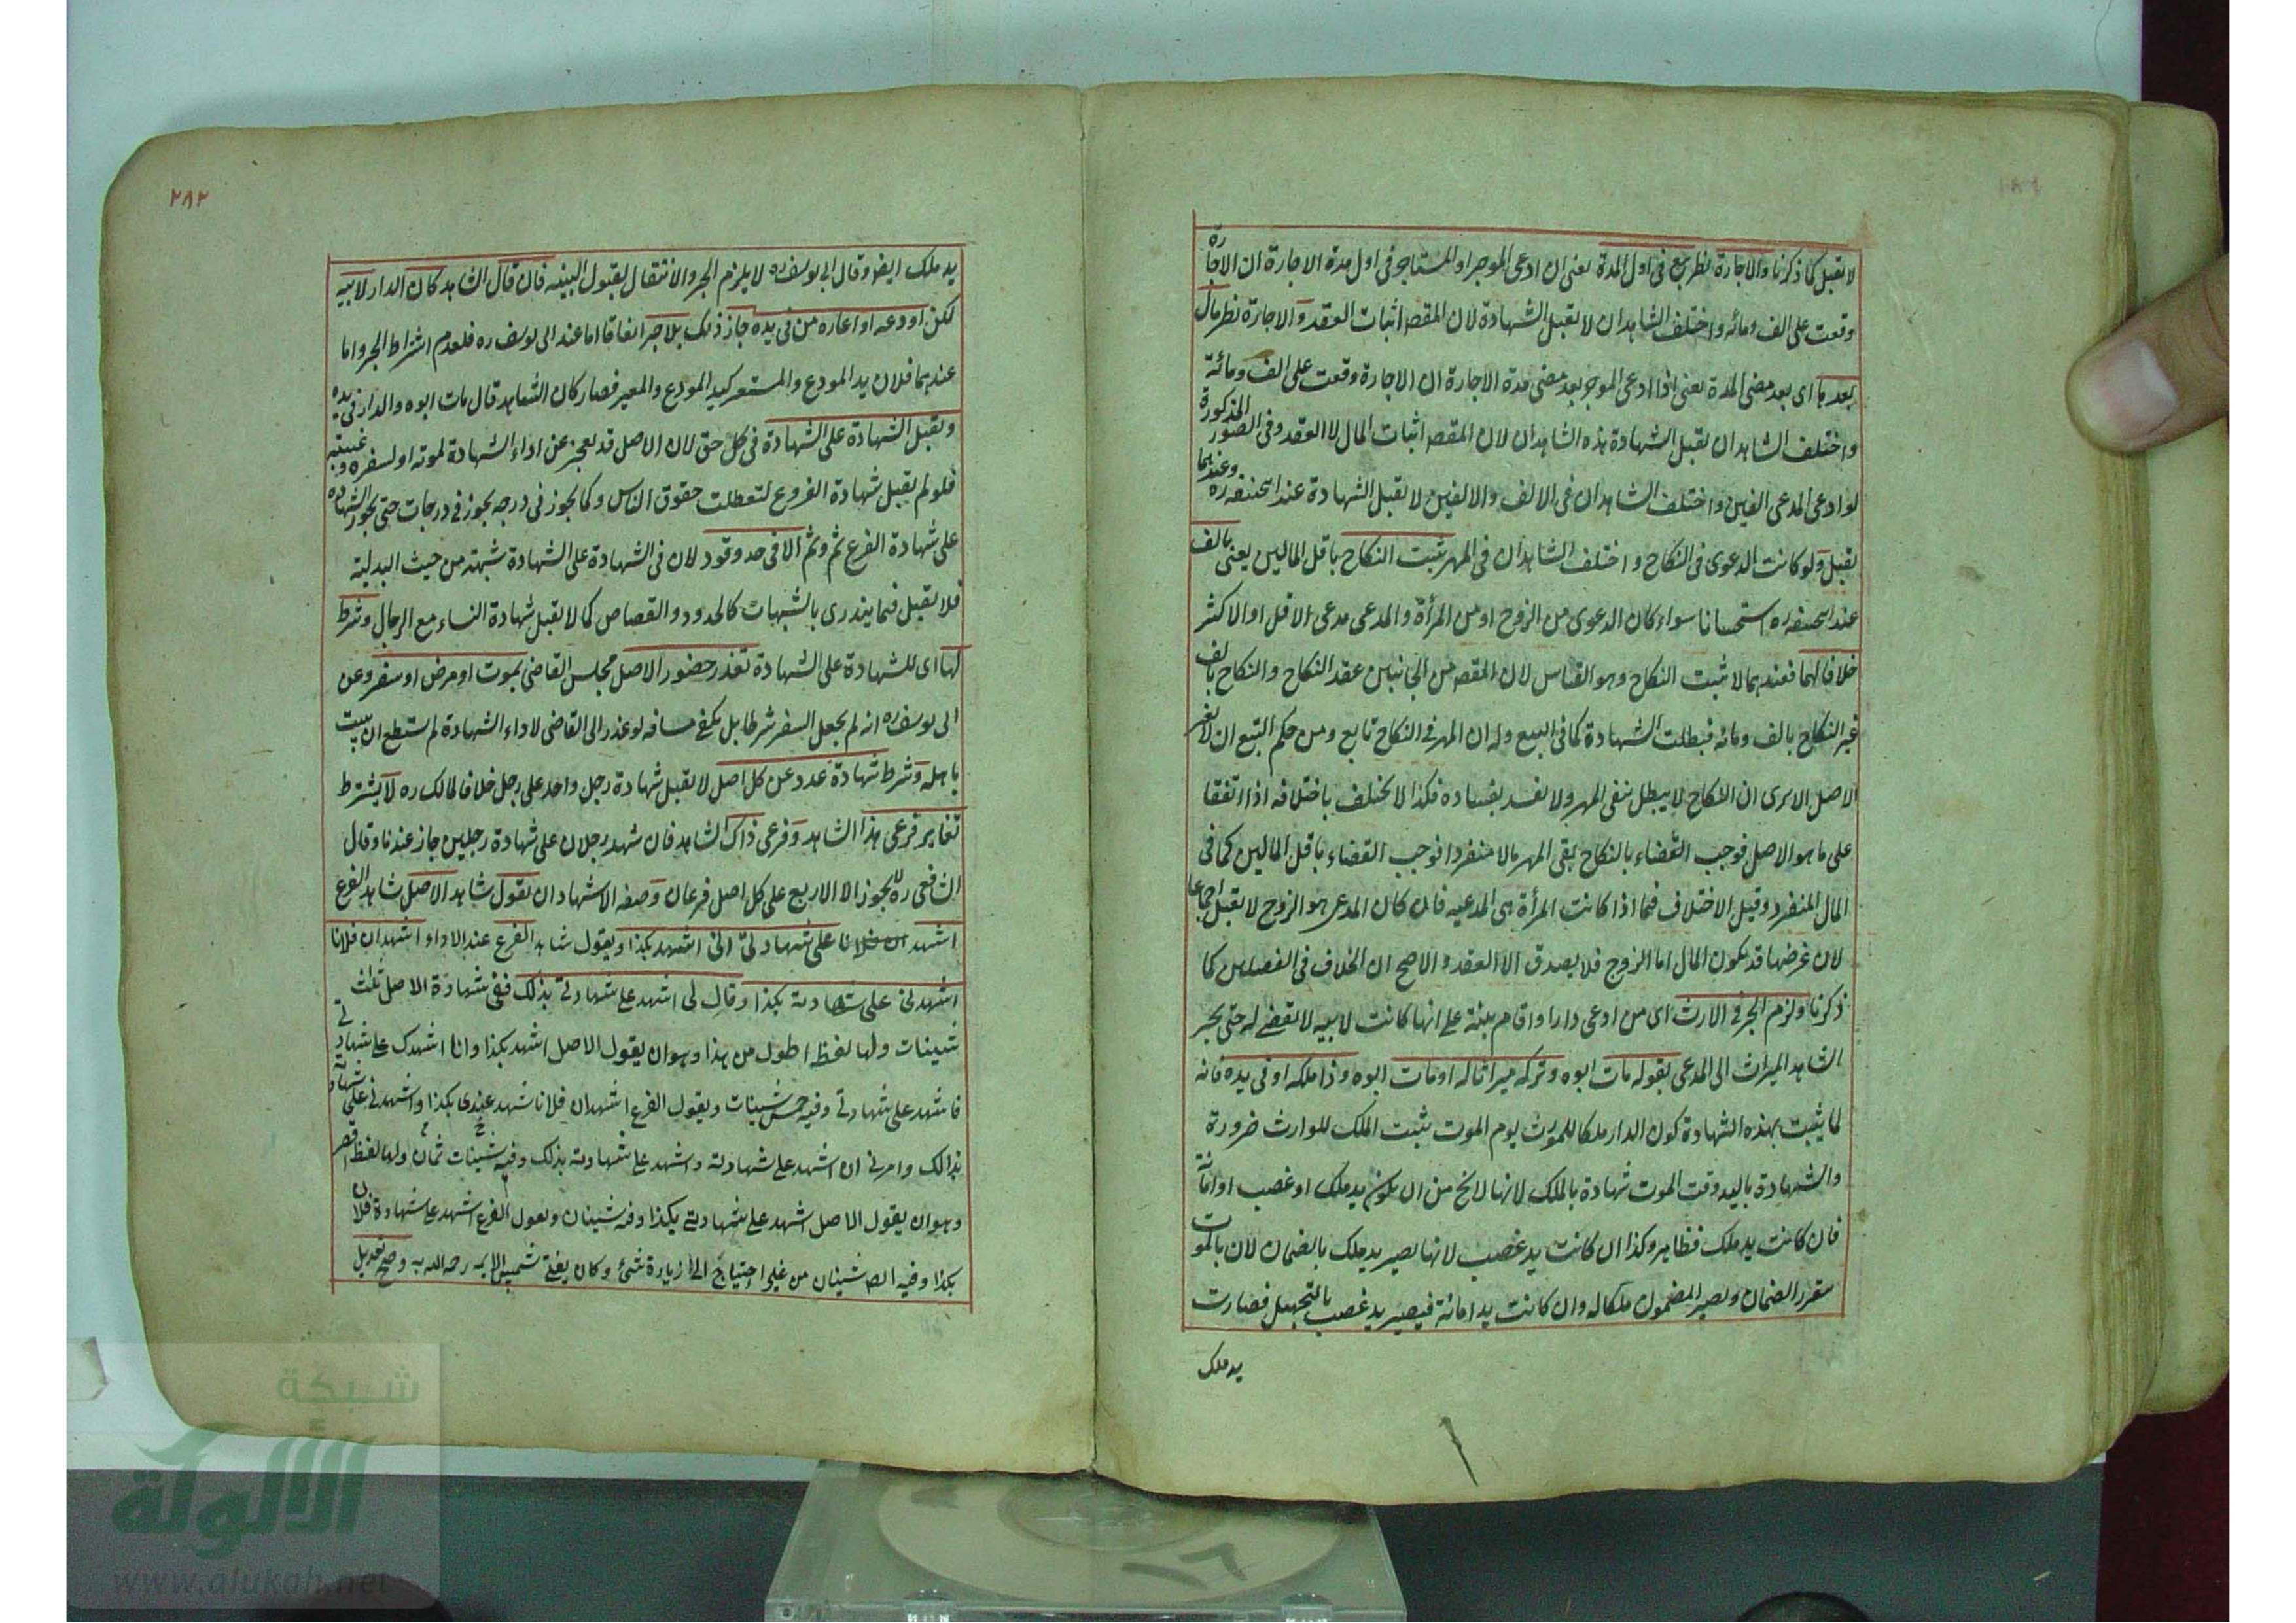 لا تقبل كما ذكرنا والاجارة نظير بيع في اول المدة يعني ان ادعى الموجر او المستاجر في اول مدة الاجارة ان الاجارة
وقعت على الف ومائه واختلف الشاهدان لا تقبل الشهادة لان المقصـ اثبات العقد والاجارة نظر مال
بعدها اى بعد مضى المدة يعنى اذا ادعى الموجر بعد مضى مدة الاجارة ان الاجارة وقعت على الف ومائة
واختلف الشاهدان تقبل الشهادة هذه الشاهدان لان المقصـ اثبات المال لا العقد وفى الصور المذكورة
لو ادعى المدعى الفين واختلف الشاهدان فى الالف والالفين لا تقبل الشهادة عند ابحنيفه ره وعندهما
تقبل ولو كانت الدعوى فى النكاح واختلف الشاهدان فى المهر يثبت النكاح باقل المالين يعنى بالف
عند ابحنيفه ره استحسانا سواء كان الدعوى من الزوج او من المرأة والمدعى مدعى الاقل او الاكثر
خلافا لهما فعندهما لا تثبت النكاح وهو القياس لان المقصـ من الجانبين عقد النكاح والنكاح بالف
غير النكاح بالف ومائه فبطلت الشهادة كما فى البيع وله ان المهر فى النكاح تابع ومن حكم التبع ان لا يغير
الاصل الا يرى ان النكاح لا يبطل بنفى المهر ولا يفسد بفساده فكذا لا يختلف باختلافه اذا اتفقا
على ما هو الاصل فوجب القضاء بالنكاح بقى المهر مالا منفردا فوجب القضاء باقل المالين كما فى
المال المنفرد وقيل الاختلاف فيما اذا كانت المرأة هى المدعيه فان كان المدعى هو الزوج لا تقبل اجماعا
لان غرضها قد يكون المال اما الزوج فلا يصدق الا العقد والاصح ان الخلاف فى الفصلين كما
ذكرنا ولزم الجر فى الارث اى من ادعى دارا واقام بينة على انها كانت لابيه لا يقضى له حتى يجر
الشاهد الميراث الى المدعى بقوله مات ابوه وتركه ميراثا له او مات ابوه وذا ملكه او فى يده فانه
لما يثبت بهذه الشهادة كون الدار ملكا للمورث يوم الموت يثبت الملك للوارث ضرورة
والشهادة باليد وقت الموت شهادة بالملك لانها لا يخ من ان يكون يد ملك او غصب او امانة
فان كانت يد ملك فظاهر وكذا ان كانت يد غصب لانها يصير يد ملك بالضمان لان بالموت
يتقرر الضمان ويصير المضمون ملكا له وان كانت يد امانة فيصير يد غصب بالتجهيل فصارت
يد ملك
٢٨٢
يد ملك ايضا وقال ابى يوسف ره لا يلزم الجر والانتقال بقبول البينه فان قال الشاهد كان الدار لابيه
لكن اودعه او اعاره من فى يده جاز ذلك بلا جر اتفاقا اما عند ابى يوسف ره فلعدم اشتراط الجر واما
عندهما فلان يد المودع والمستعير كيد المودع والمعير فصار كان الشاهد قال مات ابوه والدار فى يده
وتقبل الشهادة على الشهادة فى كل حق لان الاصل قد يعجز عن اداء الشهادة لموته او لسفره وغيبته
فلو لم يقبل شهادة الفروع لتعطلت حقوق الناس وكما يجوز فى درجه يجوز فى درجات حتى يجوز الشهاده
على شهادة الفرع ثم وثم الا فى حد وقود لان فى الشهادة على الشهادة شبهة من حيث البدلية
فلا تقبل فيما يندرى بالشبهات كالحدود والقصاص كما لا تقبل شهادة النساء مع الرجال وشرط
لها اى للشهادة على الشهادة تعذر حضور الاصل مجلس القاضى بموت او مرض او سفر وعن
ابى يوسف ره انه لم يجعل السفر شرطا بل يكفى مسافه لو غدر الى القاضى لاداء الشهادة لم يستطع ان يبيت
باهله وشرط شهادة عدد عن كل اصل لا تقبل شهادة رجل واحد على رجل خلافا لمالك ره لا يشترط
تغاير فرعى هذا الشاهد وفرعى ذاك الشاهد فان شهد رجلان على شهادة رجلين جاز عندنا وقال
الشافعى ره لا يجوز الا الاربع على كل اصل فرعان وصفه الاشهاد ان يقول شاهد الاصل شاهد الفرع
اشهد ان فلانا على شهادتى انى اشهد بكذا ويقول شاهد الفرع عند الاداء اشهد ان فلانا
اشهدنى على شهادته بكذا وقال لى اشهد على شهادتى بذلك ففى شهادة الاصل ثلث
شينات ولها لفظ اطول من هذا وهو ان يقول الاصل اشهد بكذا وانا اشهدك على شهادتى
فاشهد على شهادتى وفيه خمس شينات ويقول الفرع اشهد ان فلانا شهد عندى بكذا واشهدنى على شهادته
بذالك وامرنى ان اشهد على شهادته واشهد على شهادته بذلك وفيه شينات ثمان ولها لفظ اقصر
وهو ان يقول الاصل اشهد على شهادتى بكذا وفيه شينان ويقول الفرع اشهد على شهادة فلان
بكذا وفيه ايضـ شينان من غير احتياج الى زيادة شئ وكان يفتى شمس الايمه رحمه الله به وصح تعديل
شبكة
الألوكة
www.alukah.net